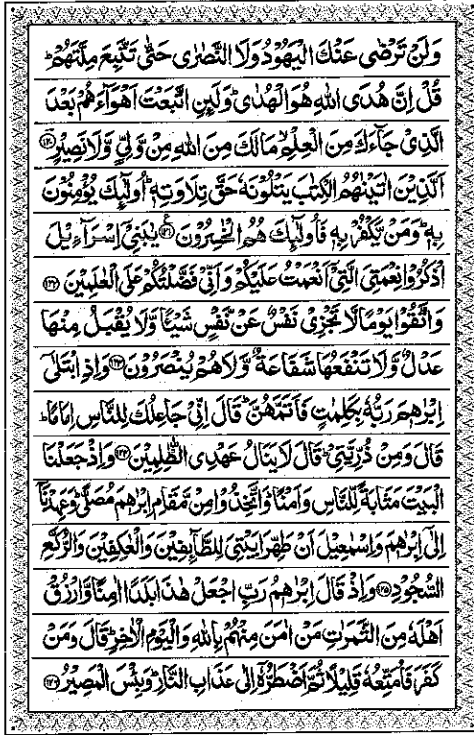 وَلَنْ تَرْضٰى عَنْكَ الْيَهُوْدُ وَلَا النَّصٰرٰى حَتّٰى تَتَّبِعَ مِلَّتَهُمْ ؕ
قُلْ اِنَّ هُدَى اللّٰهِ هُوَ الْهُدٰى ؕ وَلَئِنِ اتَّبَعْتَ اَهْوَآءَهُمْ بَعْدَ
الَّذِىْ جَآءَكَ مِنَ الْعِلْمِ ۙ مَا لَكَ مِنَ اللّٰهِ مِنْ وَّلِىٍّ وَّلَا نَصِيْرٍ ﴿۱۲۰﴾
اَلَّذِيْنَ اٰتَيْنٰهُمُ الْكِتٰبَ يَتْلُوْنَهٗ حَقَّ تِلَاوَتِهٖ ؕ اُولٰٓئِكَ يُؤْمِنُوْنَ
بِهٖ ؕ وَمَنْ يَّكْفُرْ بِهٖ فَاُولٰٓئِكَ هُمُ الْخٰسِرُوْنَ ﴿۱۲۱﴾ ع يٰبَنِىْٓ اِسْرَآءِيْلَ
اذْكُرُوْا نِعْمَتِىَ الَّتِىْٓ اَنْعَمْتُ عَلَيْكُمْ وَاَنِّىْ فَضَّلْتُكُمْ عَلَى الْعٰلَمِيْنَ ﴿۱۲۲﴾
وَاتَّقُوْا يَوْمًا لَّا تَجْزِىْ نَفْسٌ عَنْ نَّفْسٍ شَيْئًا وَّلَا يُقْبَلُ مِنْهَا
عَدْلٌ وَّلَا تَنْفَعُهَا شَفَاعَةٌ وَّلَا هُمْ يُنْصَرُوْنَ ﴿۱۲۳﴾ وَاِذِ ابْتَلٰٓى
اِبْرٰهٖمَ رَبُّهٗ بِكَلِمٰتٍ فَاَتَمَّهُنَّ ؕ قَالَ اِنِّىْ جَاعِلُكَ لِلنَّاسِ اِمَامًا ؕ
قَالَ وَمِنْ ذُرِّيَّتِىْ ؕ قَالَ لَا يَنَالُ عَهْدِى الظّٰلِمِيْنَ ﴿۱۲۴﴾ وَاِذْ جَعَلْنَا
الْبَيْتَ مَثَابَةً لِّلنَّاسِ وَاَمْنًا ؕ وَاتَّخِذُوْا مِنْ مَّقَامِ اِبْرٰهٖمَ مُصَلًّى ؕ وَعَهِدْنَآ
اِلٰٓى اِبْرٰهٖمَ وَاِسْمٰعِيْلَ اَنْ طَهِّرَا بَيْتِىَ لِلطَّآئِفِيْنَ وَالْعٰكِفِيْنَ وَالرُّكَّعِ
السُّجُوْدِ ﴿۱۲۵﴾ وَاِذْ قَالَ اِبْرٰهٖمُ رَبِّ اجْعَلْ هٰذَا بَلَدًا اٰمِنًا وَّارْزُقْ
اَهْلَهٗ مِنَ الثَّمَرٰتِ مَنْ اٰمَنَ مِنْهُمْ بِاللّٰهِ وَالْيَوْمِ الْاٰخِرِ ؕ قَالَ وَمَنْ
كَفَرَ فَاُمَتِّعُهٗ قَلِيْلًا ثُمَّ اَضْطَرُّهٗٓ اِلٰى عَذَابِ النَّارِ ؕ وَبِئْسَ الْمَصِيْرُ ﴿۱۲۶﴾